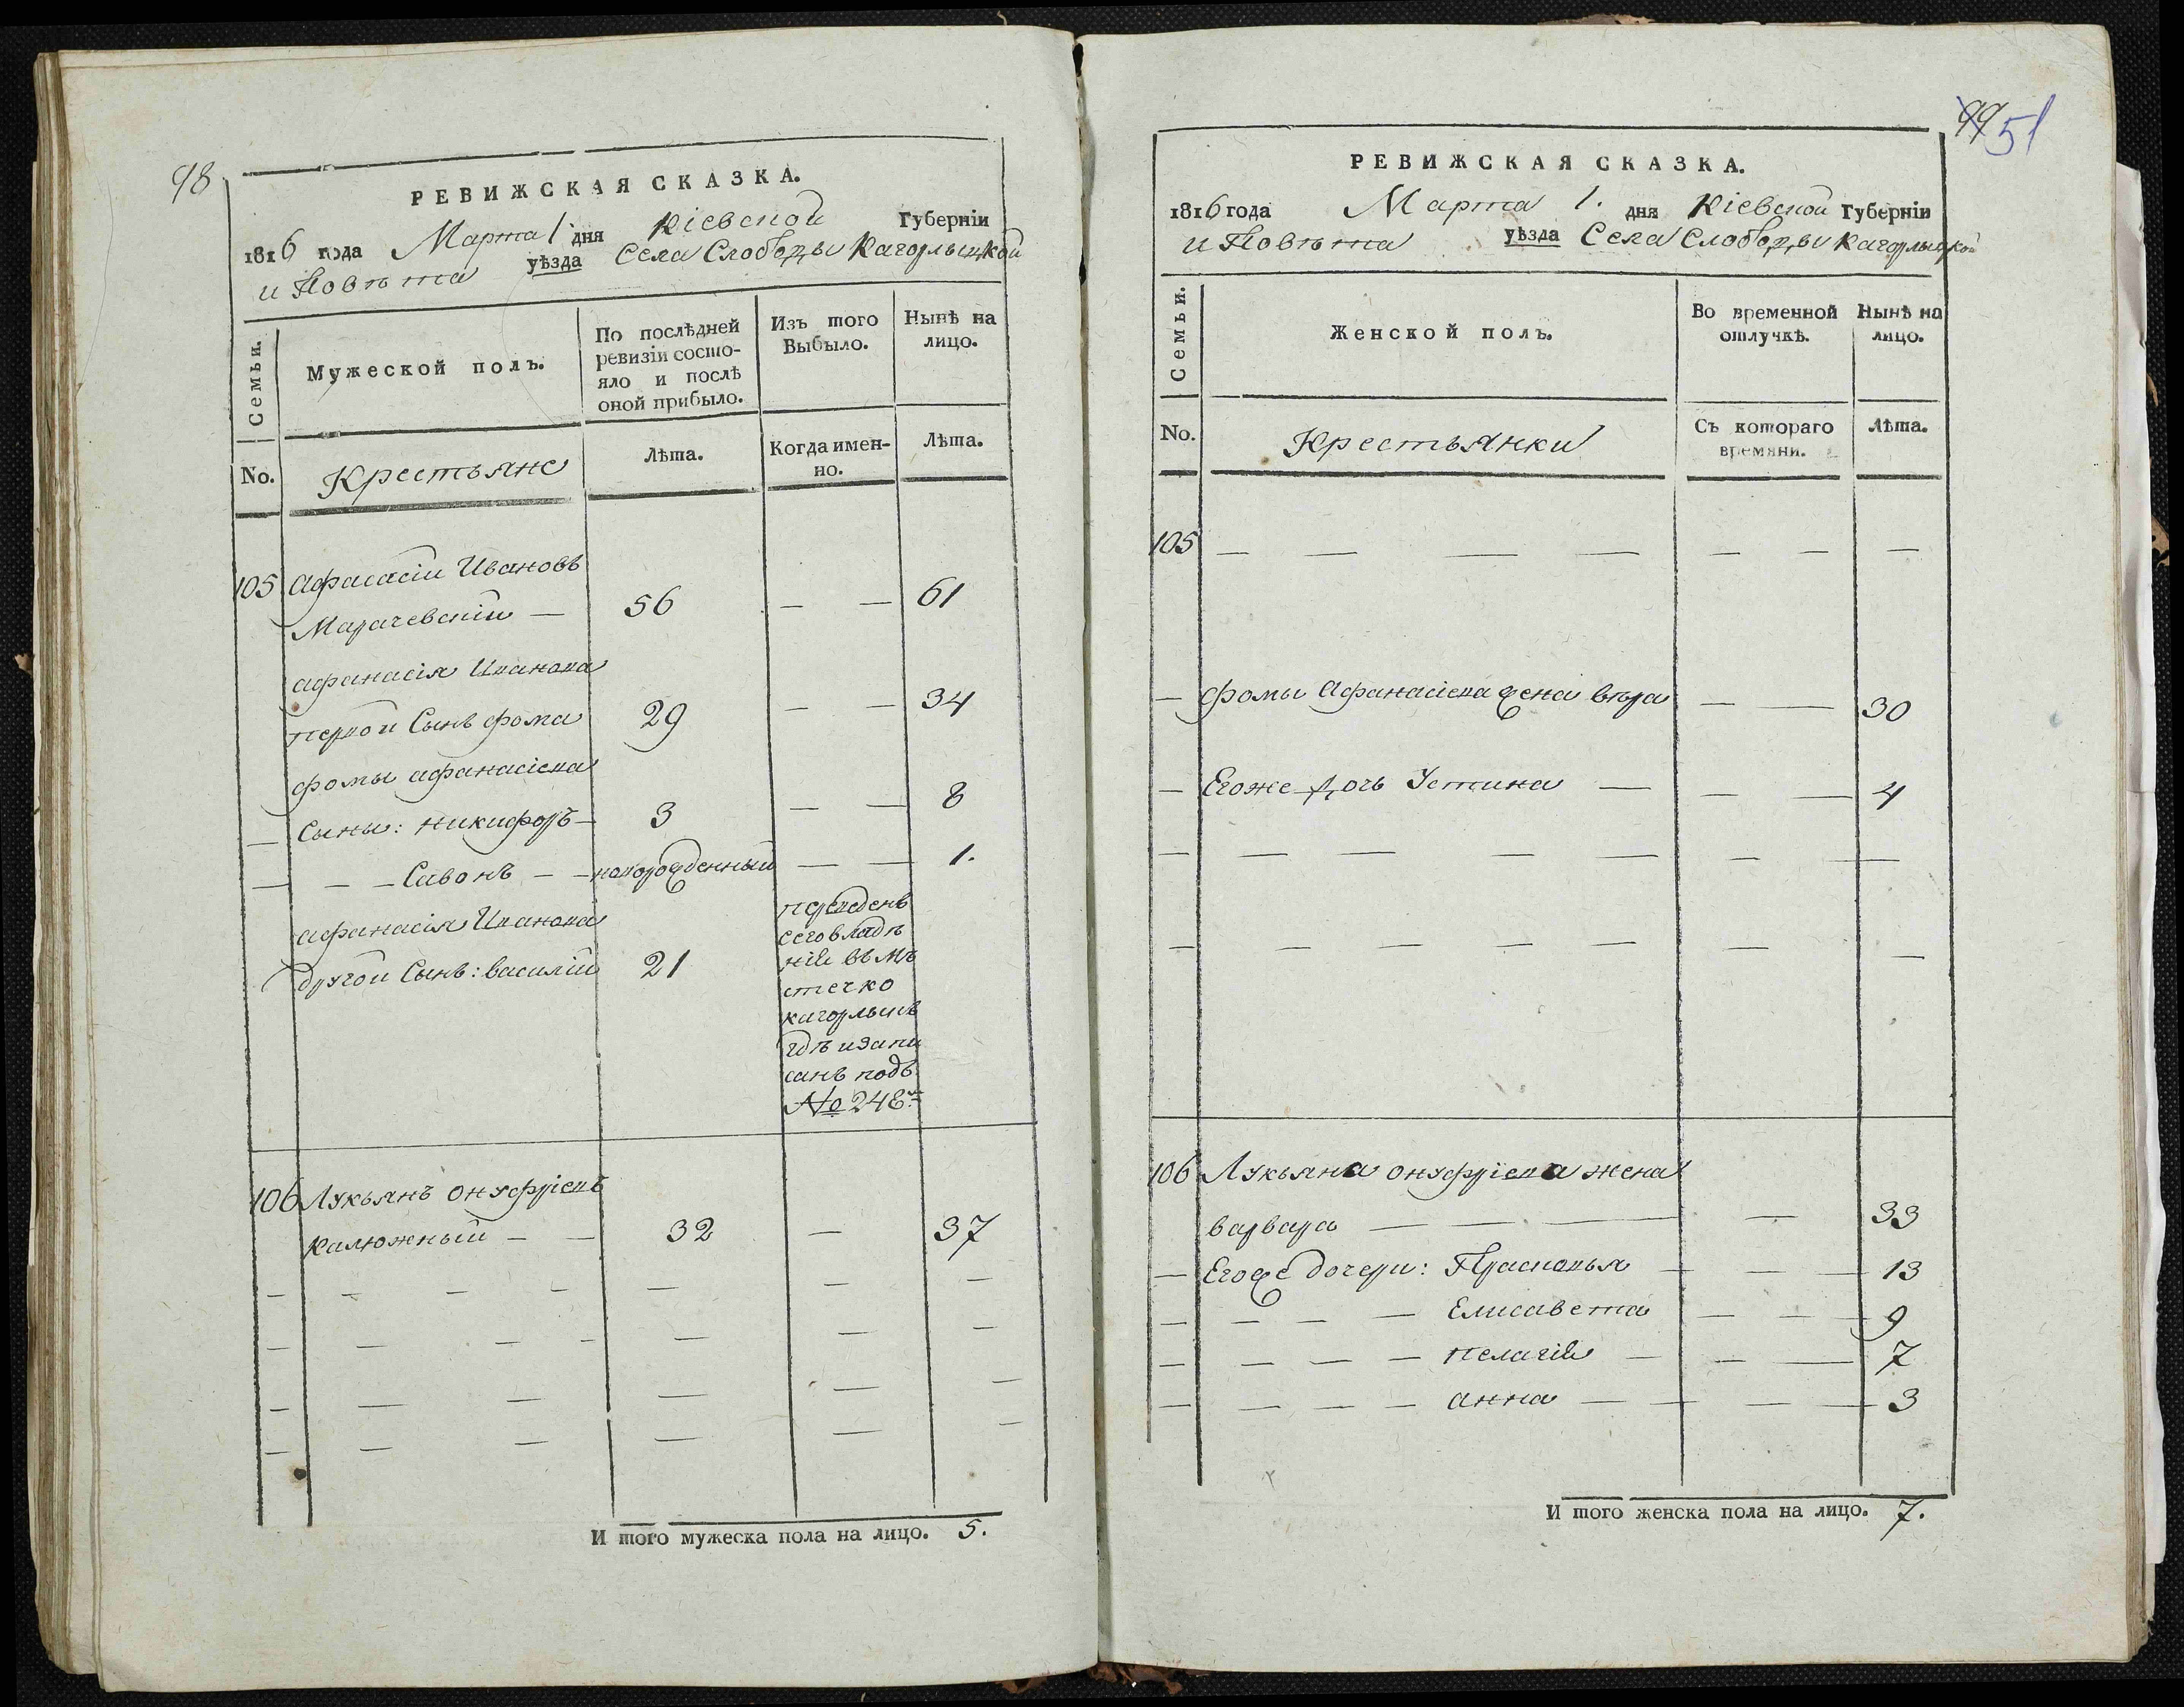 98
РЕВИЖСКАЯ СКАЗКА.
1816 года Марта 1 дня Кіевской Губерніи
и Повѣта уѣзда Села Слободы Кагорлыцкой
Семьи.
Мужеской полъ.
По послѣдней ревизіи состо-
яло и послѣ
оной прибыло.
Изъ того
Выбыло.
Нынѣ на
лицо.
No.
Крестьяне
Лѣта.
Когда имен-
но.
Лѣта.
105 Афанасіи Ивановъ
Марачевскій — 56 — — 61
афанасія Иванова
первой Сынъ фома 29 — — 34
фомы афанасіева
— Сыны: никифоръ — 3 — — 8
— — — Савонъ — — новорожденный — — 1.
афанасія Иванова
другой Сынъ: василій 21
переведенъ
сего владѣ
нія въ мѣ
стечко
кагорлыкъ
гдѣ и запи
санъ подъ
No 248м
106 Лукьянъ онуфріевъ
Калюжный — — 32 — 37
— — — — — — —
— — — — — — —
— — — — — —
— — — — — —
И того мужеска пола на лицо. 5.
99 51
РЕВИЖСКАЯ СКАЗКА.
1816 года Марта 1. дня Кіевской Губерніи
и Повѣта уѣзда Села Слободы Кагорлыцкой
Семьи.
Женской полъ.
Во временной
отлучкѣ.
Нынѣ на
лицо.
No.
Крестьянки
Съ котораго
времяни.
Лѣта.
105 — — — — — — —
— фомы Афанасіева жена втора — — 30
— Егоже дочь Устина — — — 4
— — — — — — —
— — — — — — — —
106 Лукьяна онуфріева жена
варвара — — — — 33
— Егоже дочери: Прасковья — — — 13
— — — — Елисавета — — — 9
— — — — — пелагія — — — 7
— — — — — анна — — — — 3
И того женска пола на лицо. 7.